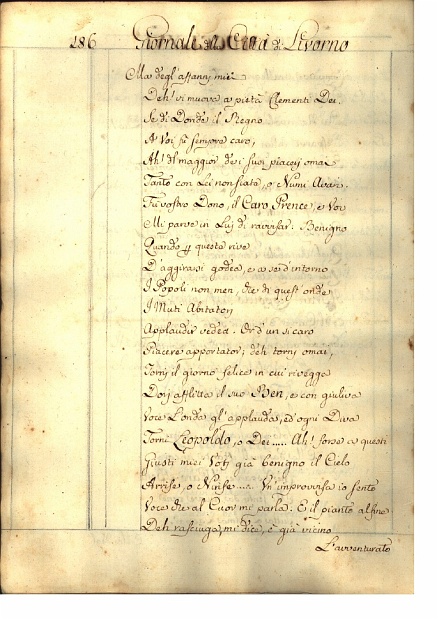 286 Giornale della Città di Livorno
Ma degl'affanni miei
Deh! vi muova a pietà Clementi Dei.
Se di Donde il Regno
A Voi fù sempre caro,
Ah! del maggior de i suoi piaceri omai
Tanto con Lei non siate, o Numi Avari.
Fù vostro Dono, il Caro Prence, e Voi
Mi parve in Lui di ravvisar. Benigno
Quando queste rive
D'aggirarsi godea, e a se d'intorno
I Popoli non men, che di quest'onde
I Muti Abitatori
Applaudir vedea. Or d'un sì caro
Piacere apportator; deh torni omai,
Torni il giorno felice in cui rivegga
Dori afflitta il suo Ben, e con giuliva
Voce l'onda gl'applauda, ed ogni Diva
Torni Leopoldo, o Dei..... Ah! forse a questi
Giusti miei Voti già benigno il Cielo
Arrise, o Ninfe.... Un'improvvisa io sento
Voce che al Cuor mi parla. E il pianto alfine
Deh rasciuga, mi dice, è già vicino
L'avventurato